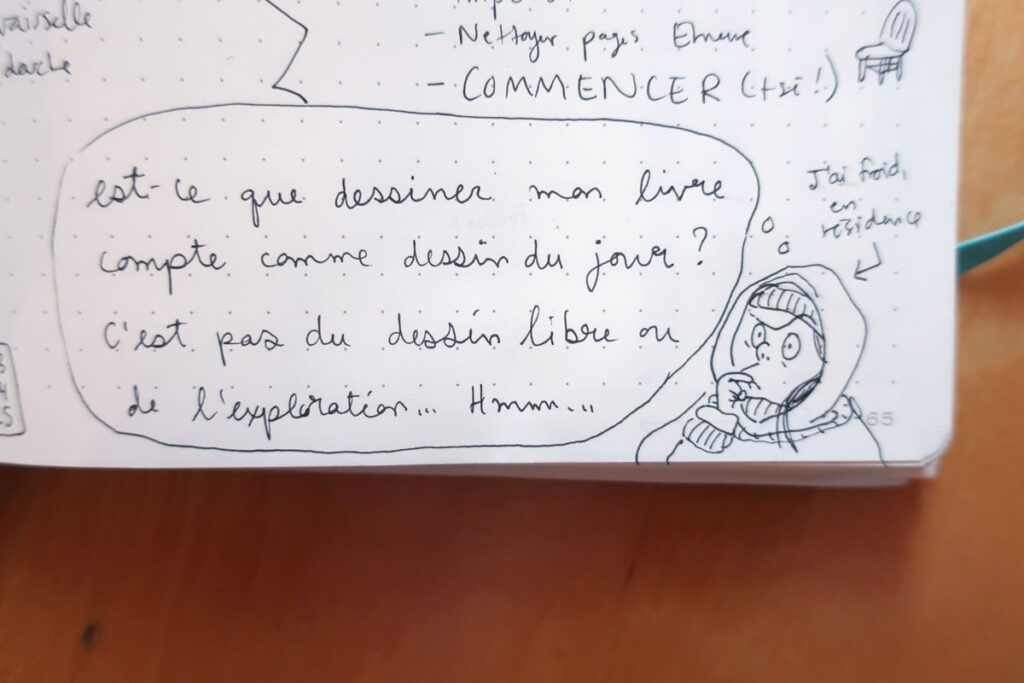 vaisselle
douche
- Nettoyer pages
- COMMENCER
est-ce que dessiner mon livre
compte comme dessin du jour ?
C'est pas du dessin libre ou
de l'exploration... Hmmm...
J'ai froid,
en
résidence
65